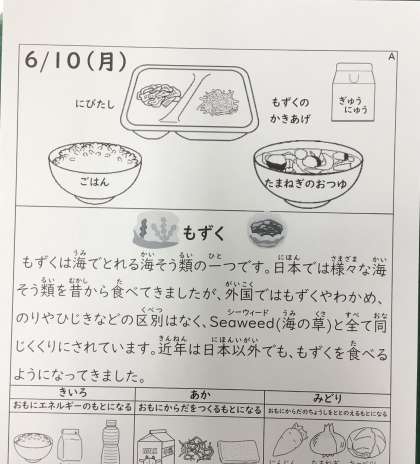 6/10(月)
A
にびたし
もずくの
かきあげ
ぎゅう
にゅう
ごはん
たまねぎのおつゆ
もずく
もずくは海でとれる海そう類の一つです。日本では様々な海
そう類を昔から食べてきましたが、外国ではもずくやわかめ、
のりやひじきなどの区別はなく、Seaweed(海の草)と全て同
じくくりにされています。近年は日本以外でも、もずくを食べる
ようになってきました。
きいろ
あか
みどり
おもにエネルギーのもとになる
おもにからだをつくるもとになる
おもにからだのちょうしをととのえるもとになる